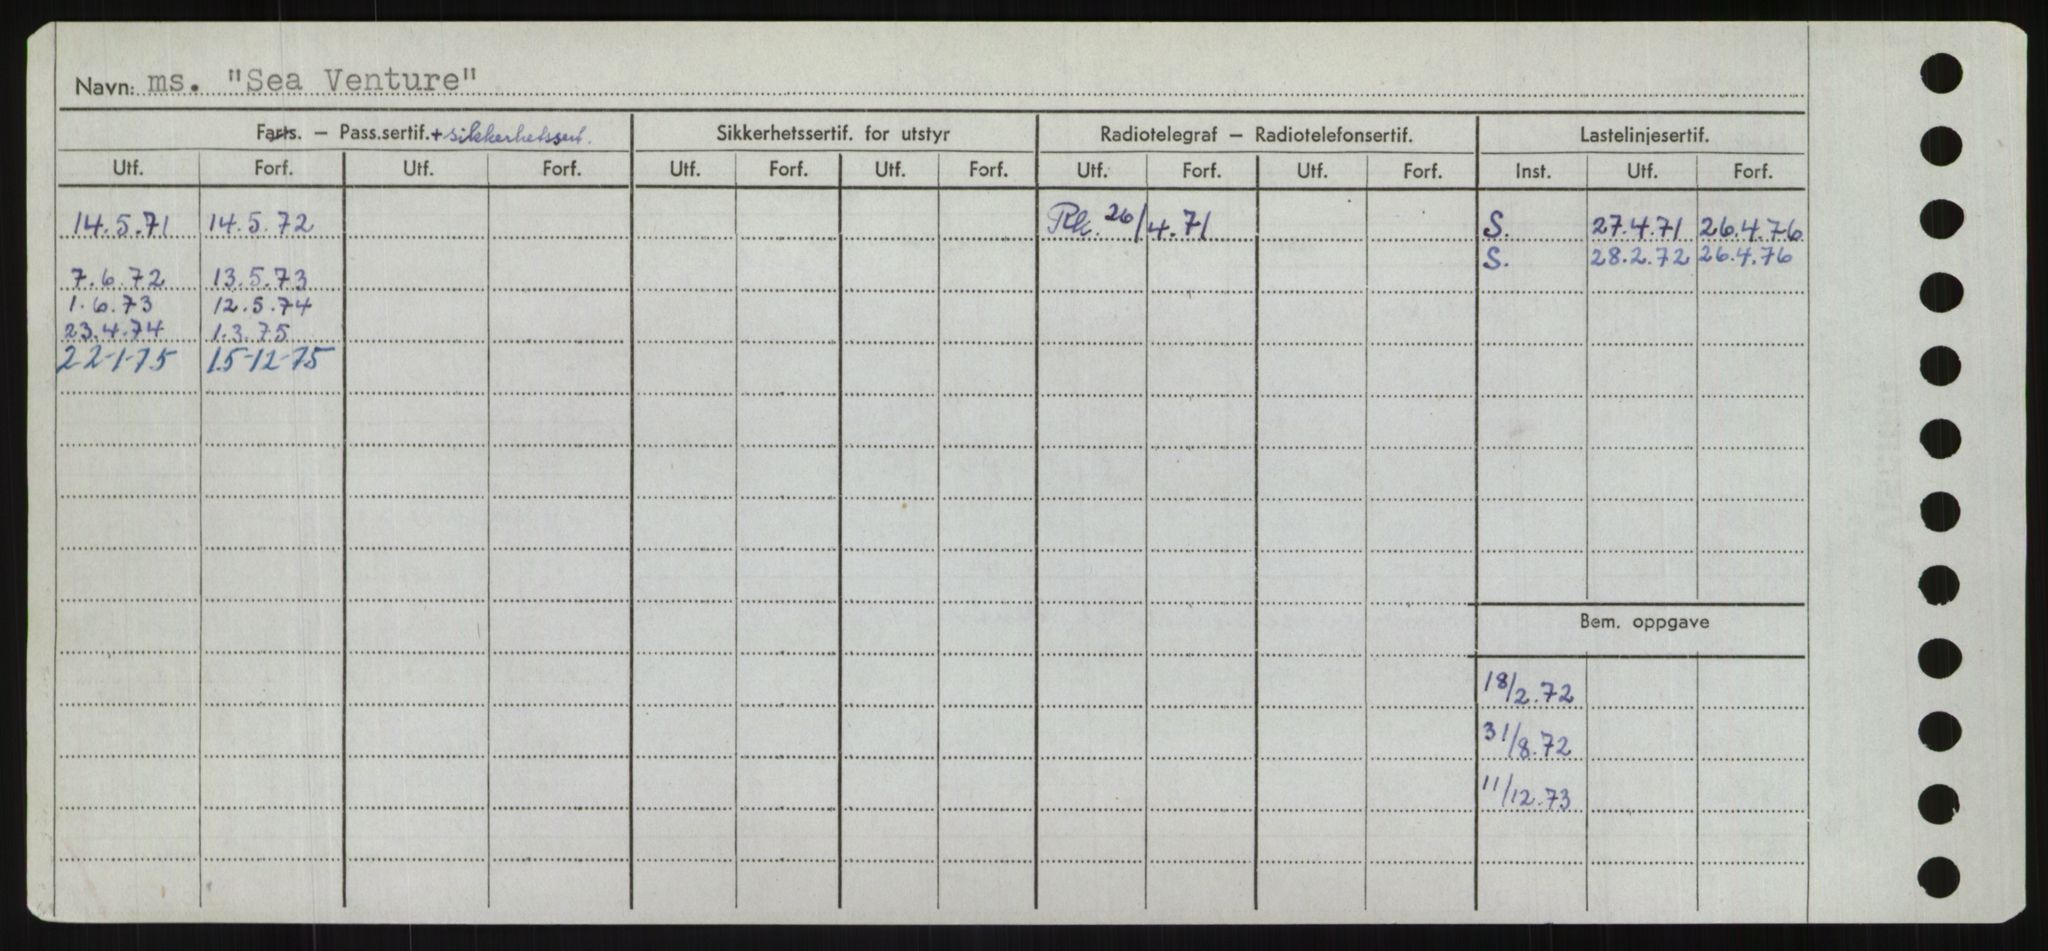 Navn: ms. "Sea Venture"
Farts. – Pass.sertif. + sikkerhetssert. Sikkerhetssertif. for utstyr Radiotelegraf – Radiotelefonsertif. Lastelinjesertif.
Utf. Forf. Utf. Forf. Utf. Forf. Utf. Forf. Utf. Forf. Utf. Forf. Inst. Utf. Forf.
14.5.71 14.5.72 26/4.71 S. 27.4.71 26.4.76
S. 28.2.72 26.4.76
7.6.72 13.5.73
1.6.73 12.5.74
23.4.74 1.3.75
22-1-75 15-12-75
Bem. oppgave
18/2.72
31/8.72
11/12.73